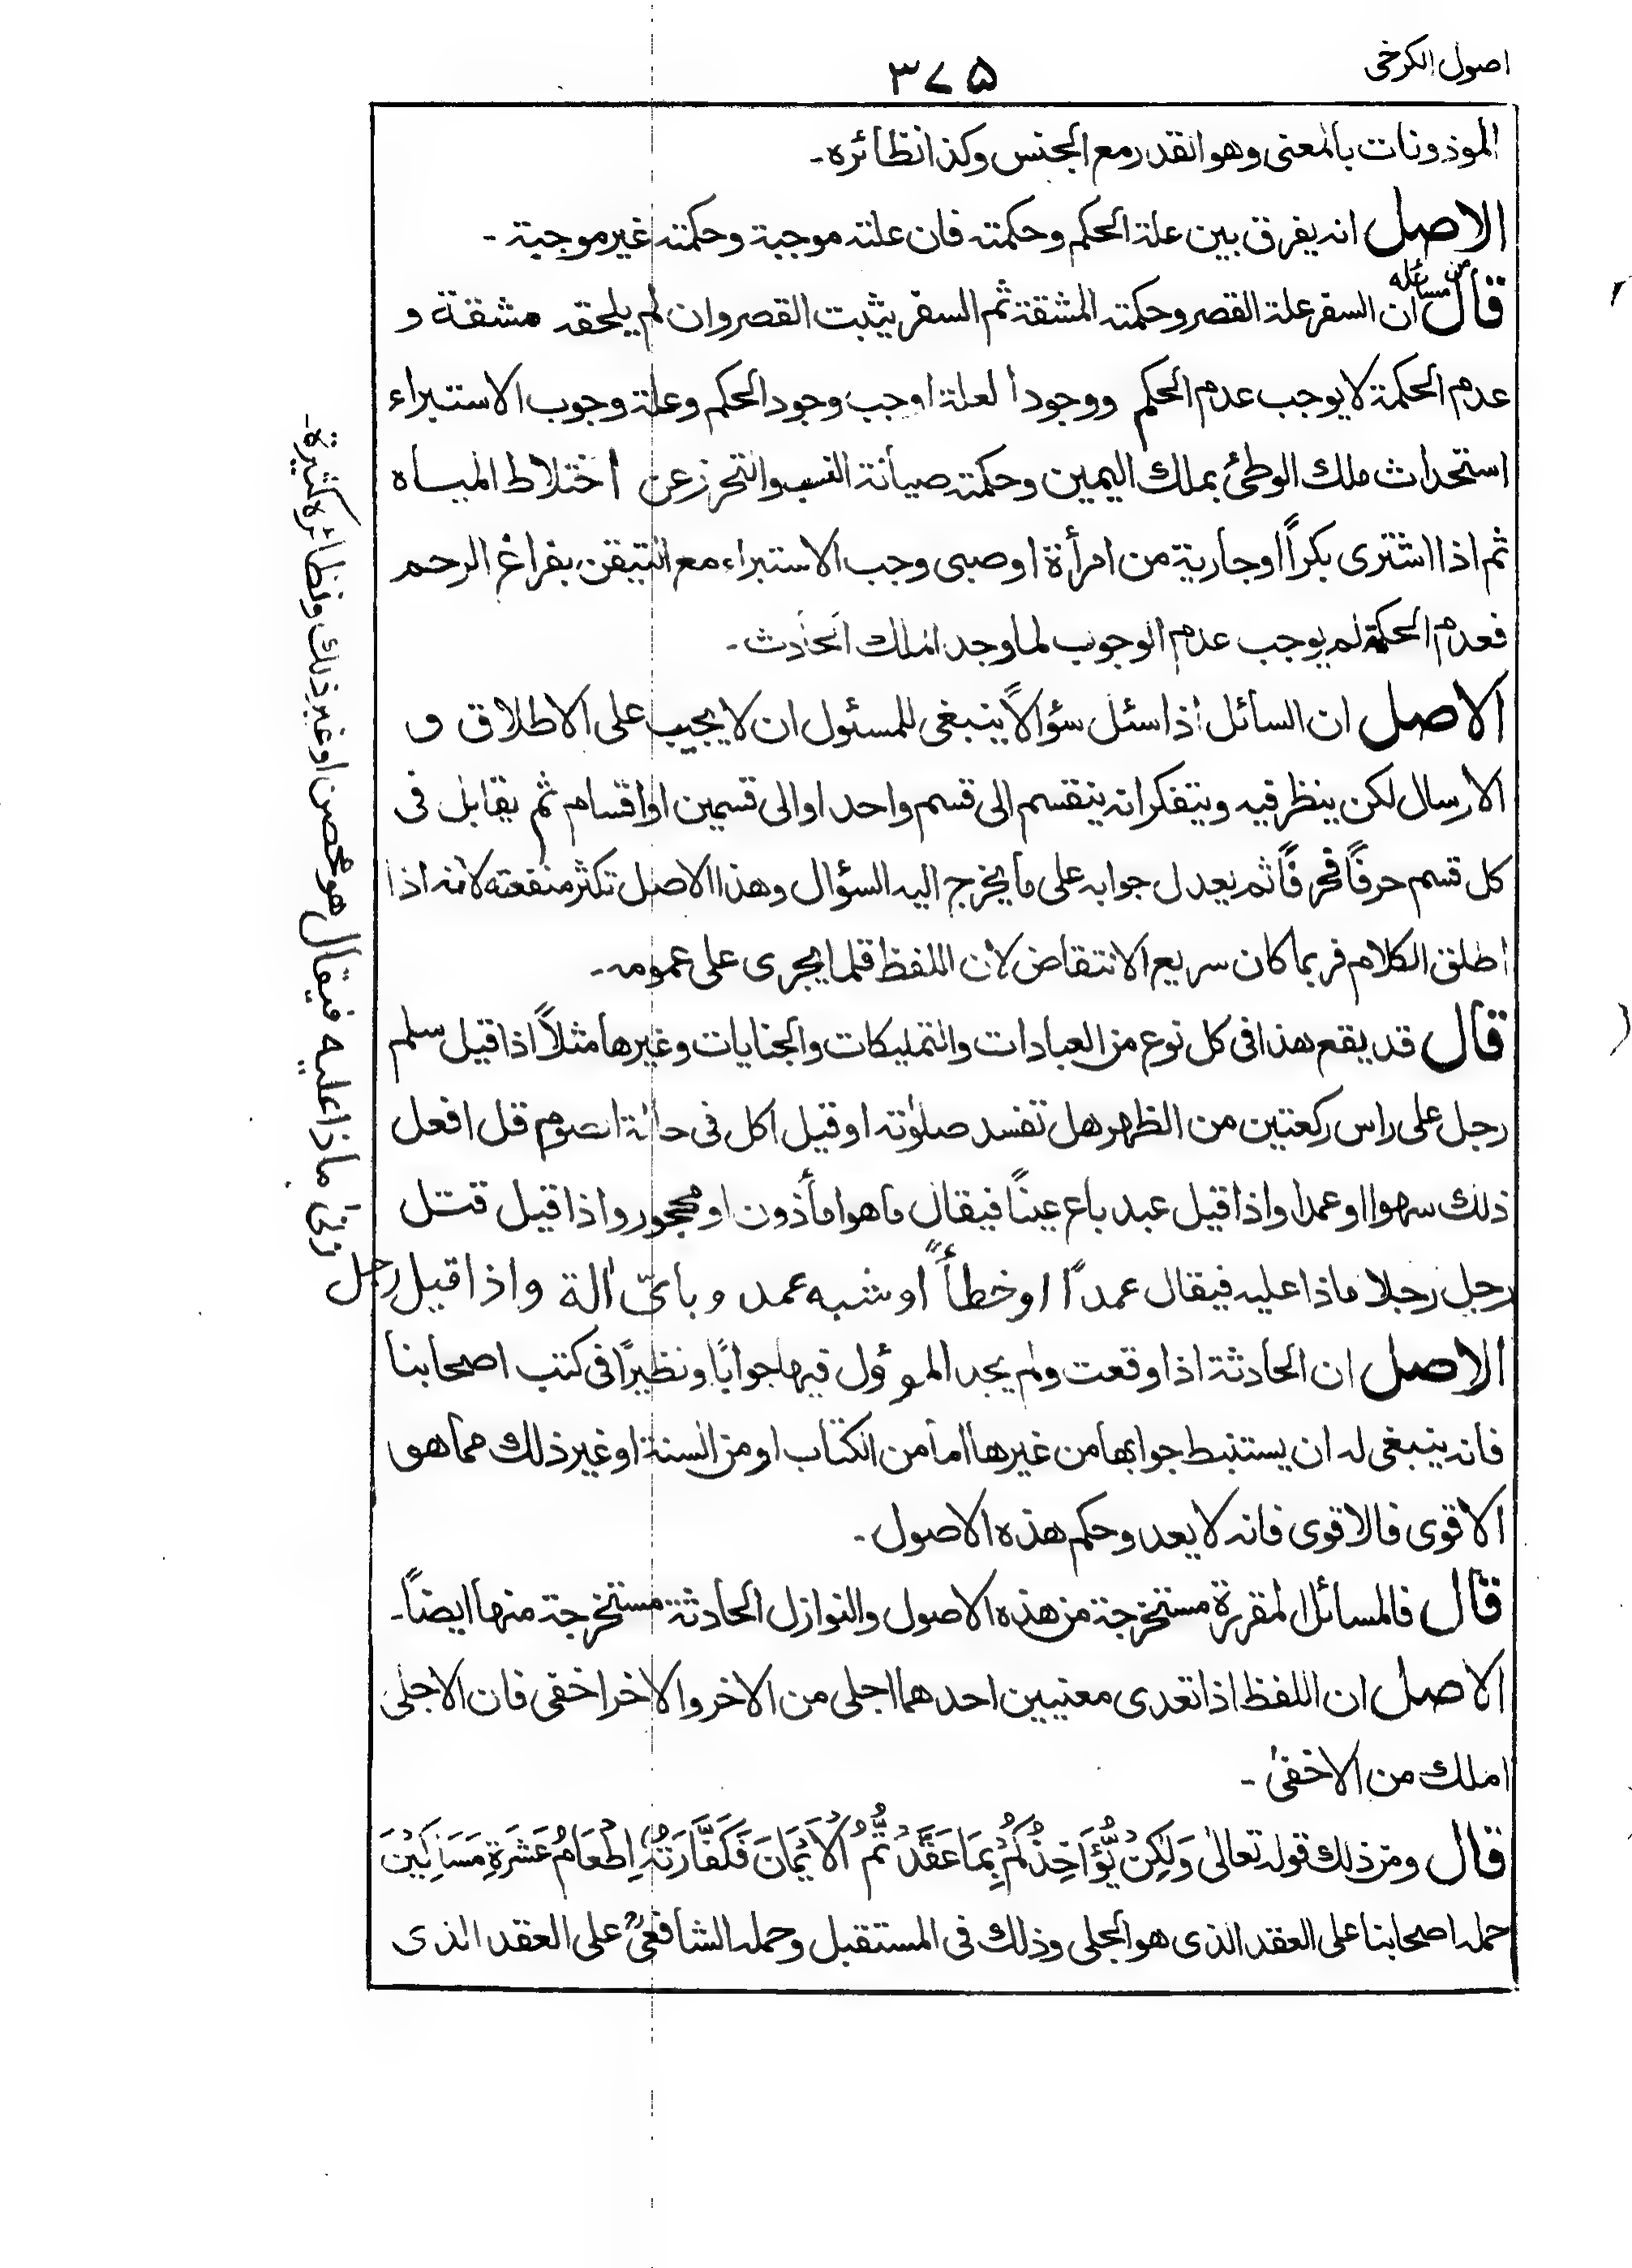 اصول الكرخى
٣٧٥
الموذونات بالمعنى وهو القدر مع الجنس وكذا نظائره۔
الاصل انه يفرق بين علة الحكم وحكمته فان علته موجبة وحكمته غير موجبة۔
قال من مسائله ان السفر علة القصر وحكمته المشقة ثم السفر يثبت القصر وان لم يلحقه مشقة و
عدم الحكمة لا يوجب عدم الحكم ووجود العلة اوجب وجود الحكم وعلة وجوب الاستبراء
استحداث ملك الوطئ بملك اليمين وحكمته صيانة النسب والتحرز عن اختلاط المياه
ثم اذا اشترى بكراً او جارية من امرأة او صبى وجب الاستبراء مع التيقن بفراغ الرحم
فعدم الحكمة لم يوجب عدم الوجوب لما وجد الملك الحادث۔
الاصل ان السائل اذا سئل سؤالاً ينبغى للمسئول ان لا يجيب على الاطلاق و
الارسال لكن ينظر فيه ويتفكر انه ينقسم الى قسم واحد او الى قسمين او اقسام ثم يقابل فى
كل قسم حرفاً فحرفاً ثم يعدل جوابه على ما يخرج اليه السؤال وهذا الاصل تكثر منفعته لانه اذا
اطلق الكلام فربما كان سريع الانتقاض لان اللفظ قلما يجرى على عمومه۔
قال قد يقع هذا فى كل نوع من العبادات والتمليكات والجنايات وغيرها مثلاً اذا قيل سلم
رجل على راس ركعتين من الظهر هل تفسد صلوٰته او قيل اكل فى حالة الصوم قل افعل
ذلك سهوا او عمدا واذا قيل عبد باع عيناً فيقال ما هو اماذون او محجور واذا قيل قتل
رجل رجلا ماذا عليه فيقال عمداً او خطأً او شبه عمد و باىّ اٰلة واذا قيل رجل
زنىٰ ماذا عليه فيقال هو محصن او غير ذلك ونظائره كثيرة۔
الاصل ان الحادثة اذا وقعت ولم يجد المسؤل فيها جوابًا ونظيرًا فى كتب اصحابنا
فانه ينبغى له ان يستنبط جوابها من غيرها اما من الكتاب او من السنة او غير ذلك مما هو
الاقوى فالاقوى فانه لا يعدو حكم هذه الاصول۔
قال فالمسائل المقررة مستخرجة من هذه الاصول والنوازل الحادثة مستخرجة منها ايضاً۔
الاصل ان اللفظ اذا تعدى معنيين احدهما اجلى من الاخر والاخر اخفى فان الاجلىٰ
املك من الاخفىٰ۔
قال ومن ذلك قوله تعالىٰ وَلٰكِنْ يُّؤَاخِذُكُمْ بِمَا عَقَّدْتُّمُ الْاَيْمَانَ فَكَفَّارَتُهٗ اِطْعَامُ عَشَرَةِ مَسَاكِيْنَ
حمله اصحابنا على العقد الذى هو الجلى وذلك فى المستقبل وحمله الشافعىؒ على العقد الذى